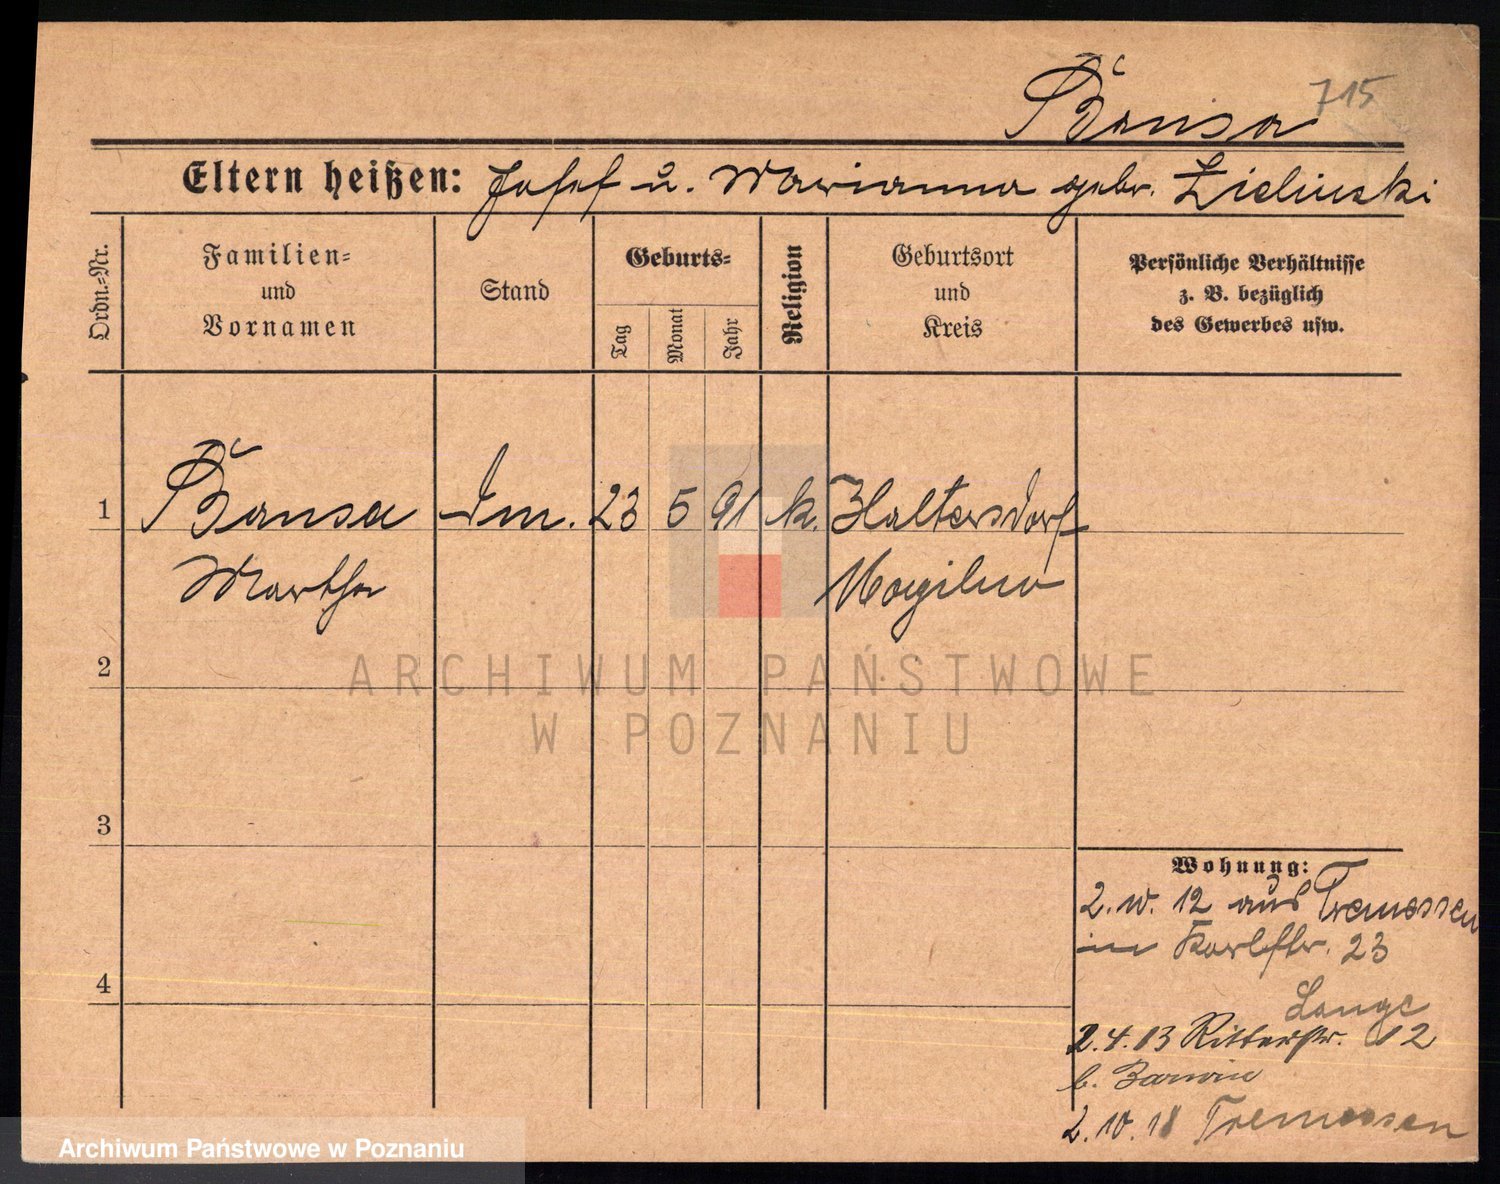 Bansa 715
Eltern heißen: Josef u. Marianna gebr. Zielinski
Ordn.-Nr.
Familien-
und
Vornamen
Stand
Geburts-
Tag
Monat
Jahr
Religion
Geburtsort
und
Kreis
Persönliche Verhältnisse
z. B. bezüglich
des Gewerbes usw.
1 Bansa 23 5 91 k. Haltersdorf
Martha Mogilno
2
ARCHIWUM PAŃSTWOWE
W POZNANIU
3
Wohnung:
2.10.12 aus Tremessen
in Karlstr. 23
4
Lange
2.4.13 Ritterstr. 12
b.
2.10.18 Tremessen
Archiwum Państwowe w Poznaniu